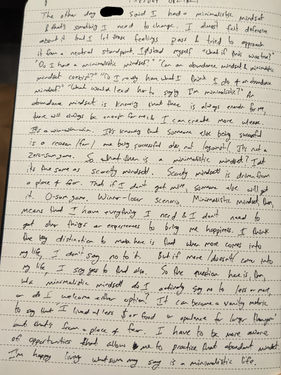 The other day said I had a minimalistic mindset
& that's something I need to change. I almost felt defensive
about it but I let those feelings pass & tried to approach
it from a neutral standpoint. I asked myself "What if this was true?"
"Do I had a minimalistic mindset?" "Can an abundance mindset & minimalistic
mindset coexist?" "Do I really have what I think I do of an abundance
mindset?" "What would lead her to say I'm minimalistic?" An
abundance mindset is knowing that there is always enough for me,
there will always be enough for me & I can create more wherever.
It's a win-win. It's knowing that someone else being successful
is a reason for me being successful does not against. It's not a
zero-sum game. So what then is a minimalistic mindset? Is it
the same as scarcity mindset. Scarcity mindset is driven from
a place of fear. That if I don't get mine, someone else will get
it. 0-sum game. Winner-loser scenario. Minimalistic mindset, then,
means that I have everything I need & I don't need to
get other things or experiences to bring me happiness. I think
the big distinction to make here is that when more comes into
my life, I don't say no to it. but if more doesn't come into
my life I say yes to that also. So the question here is, then
w/a minimalistic mindset do I actively say no to less or more,
or do I welcome either option? It can become a vanity metric
to say that I lived at less $ or food or opulence for longer
but that's from a place of fear. I have to be more aware
of opportunities that allow me to practice that abundant mindset.
I'm happy living what some may say is a minimalistic life.